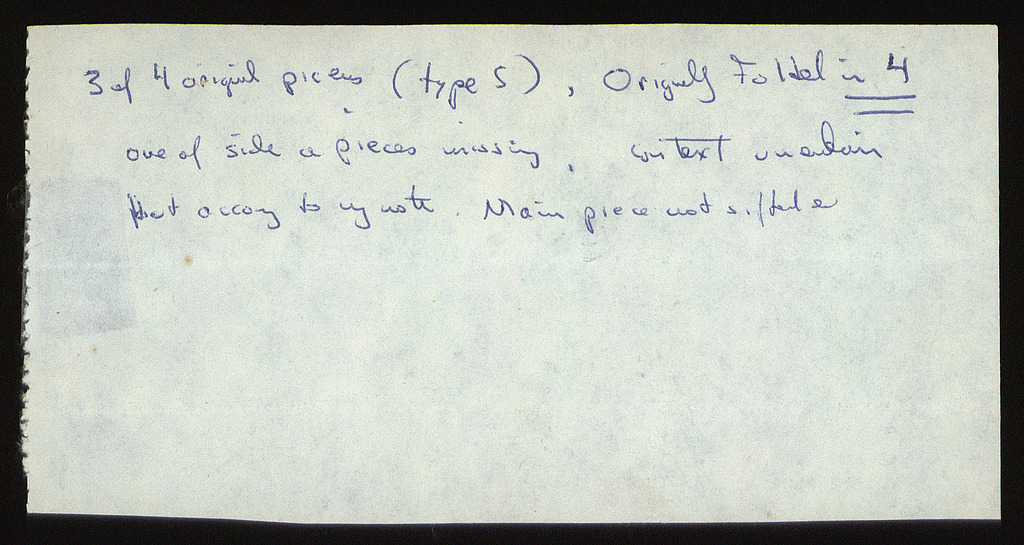 3 of 4 original pieces (type 5), Originally Folded in 4
one of side a pieces missing, context uncertain
that accorg to my note. Main piece not sifted